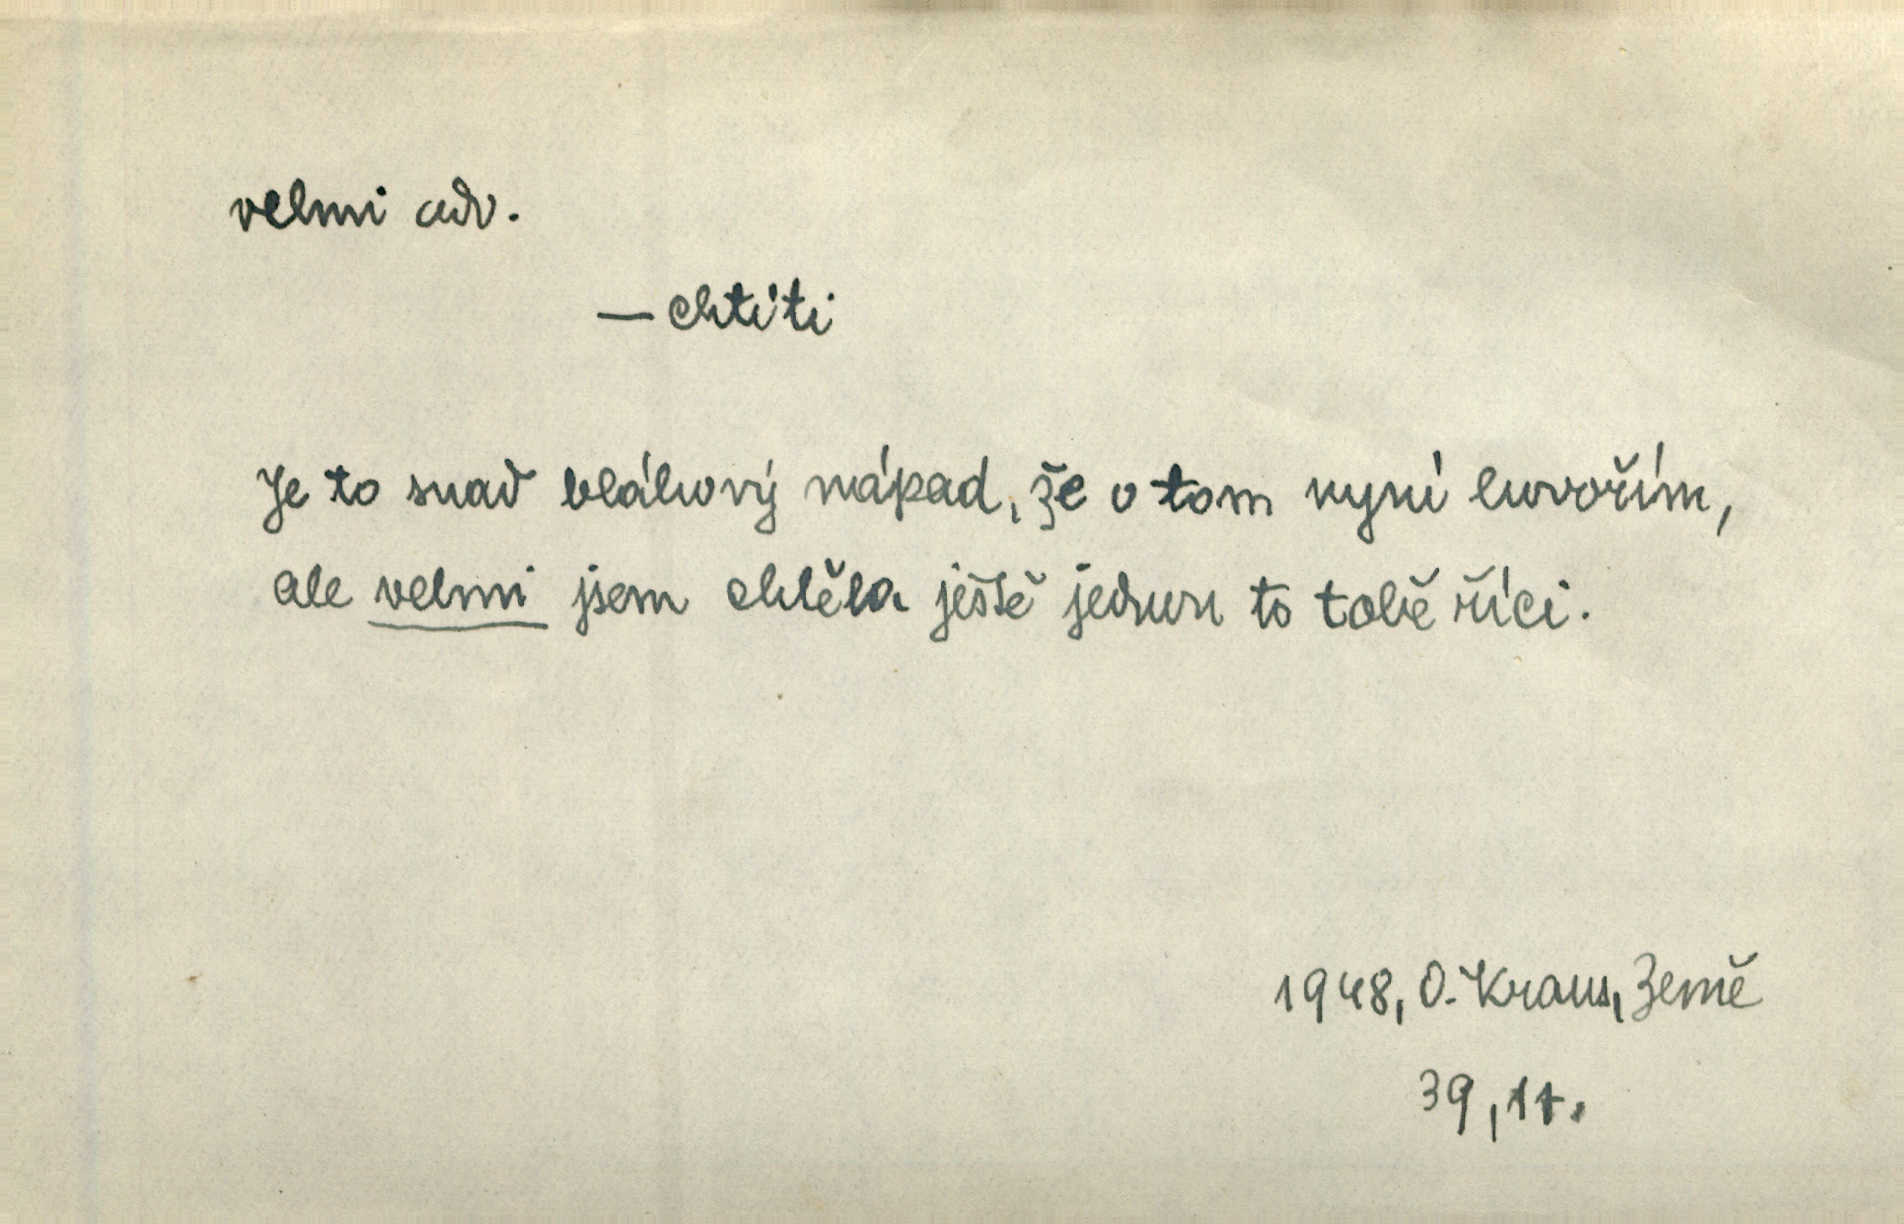 velmi adv.
— chtíti
Je to snad bláhový nápad, že o tom nyní hovořím,
ale velmi jsem chtěla ještě jednou to tobě říci.
1948, O. Kraus, Země
39,